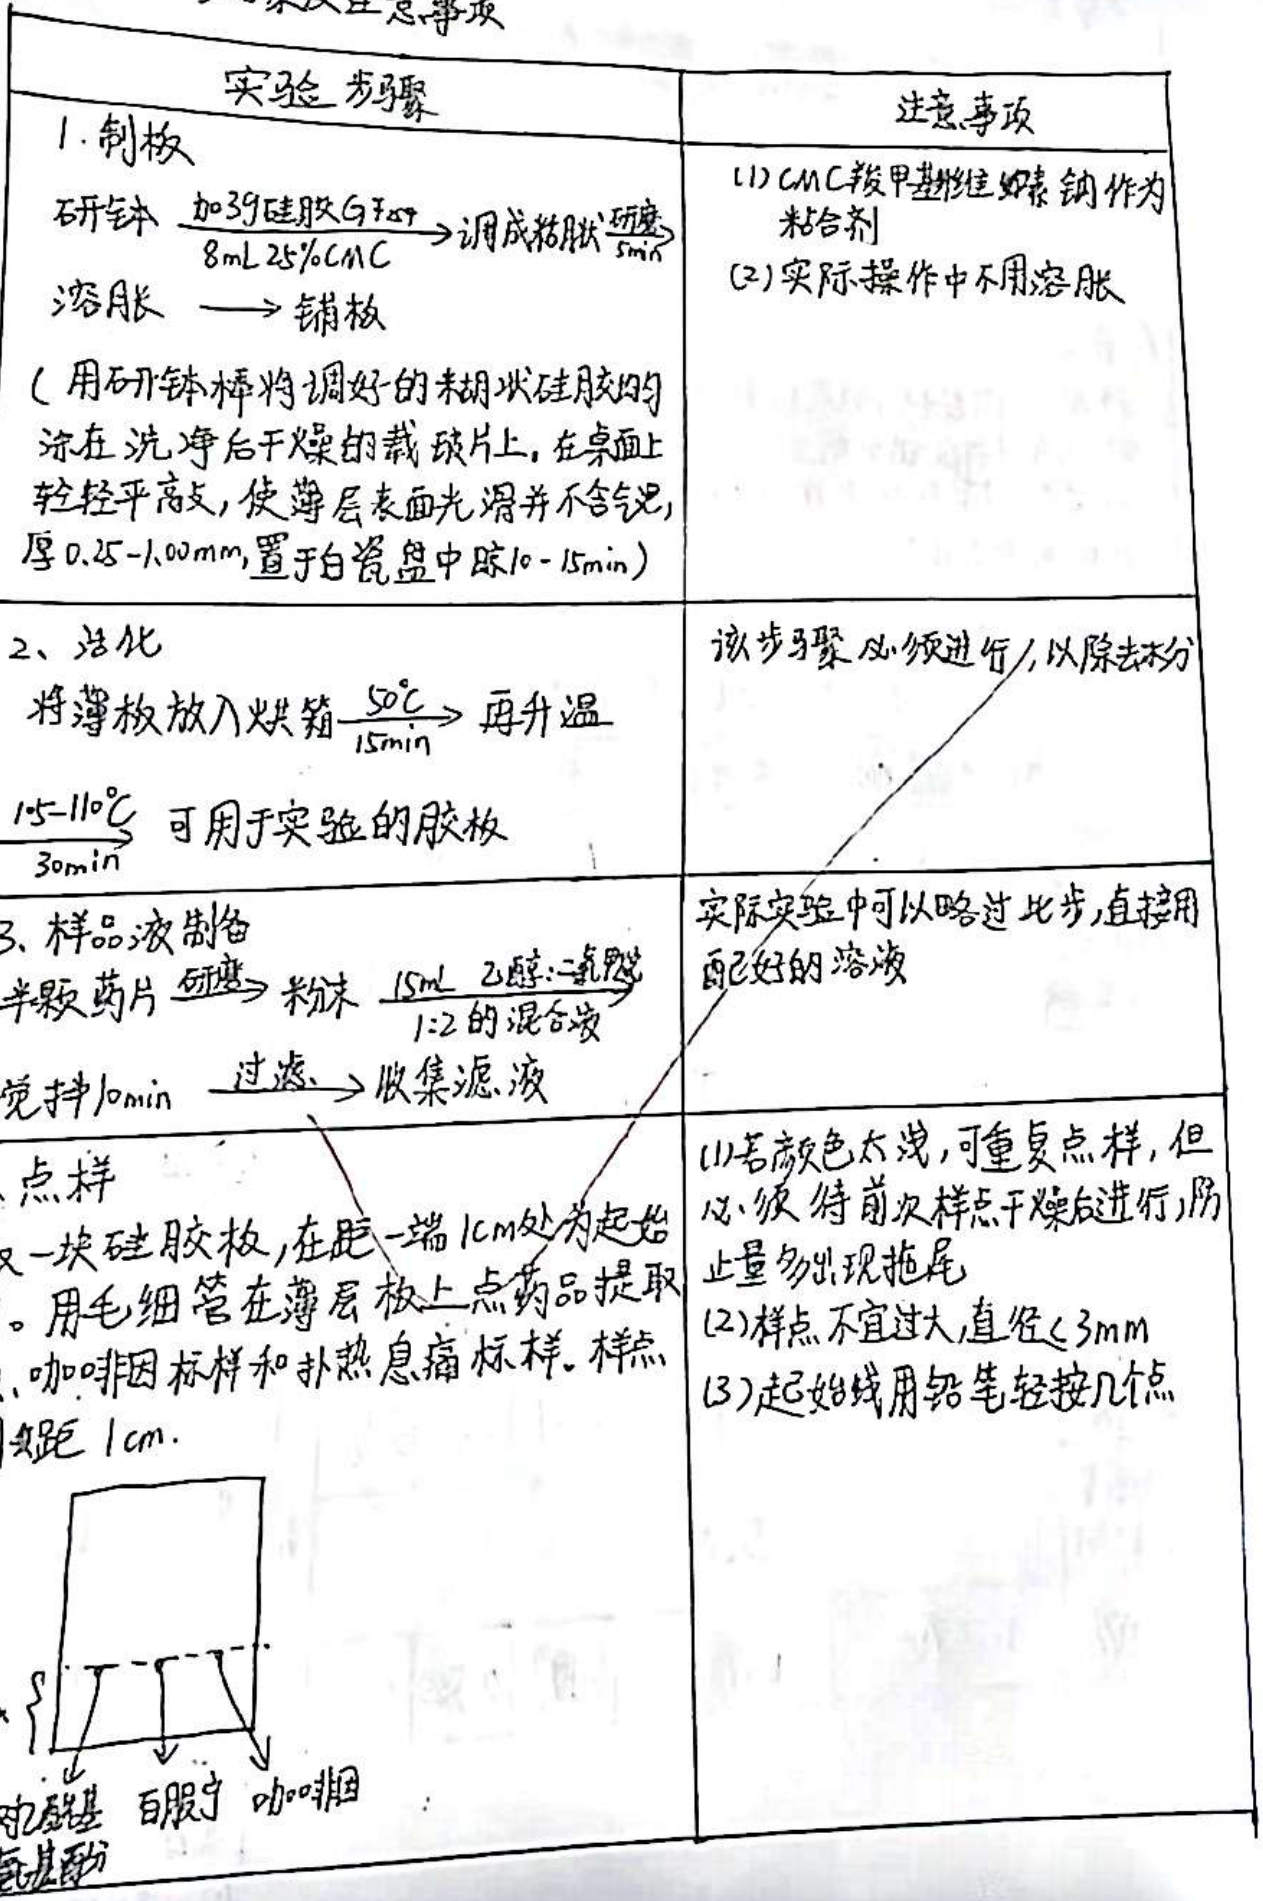 及注意事项
实验步骤
注意事项
1.制板
研钵 加3g硅胶GF254 8mL 25%CMC → 调成糊状 研磨 5min →
溶胀 → 铺板
(用研钵棒将调好的糊状硅胶均匀
涂在洗净后干燥的载玻片上。在桌面上
轻轻平敲,使薄层表面光滑并不含气泡,
厚0.25-1.00mm,置于白瓷盘中晾10-15min)
(1)CMC羧甲基纤维素钠作为
粘合剂
(2)实际操作中不用溶胀
2、活化
将薄板放入烘箱 50℃ 15min → 再升温
105-110℃ 30min → 可用于实验的胶板
该步骤必须进行,以除去水分
3、样品液制备
半颗药片 研磨 → 粉末 15mL 乙醇:二氯甲烷 1:2的混合液 →
搅拌10min 过滤 → 收集滤液
实际实验中可以略过此步,直接用
配好的溶液
、点样
一块硅胶板,在距一端1cm处为起始
。用毛细管在薄层板上点药品提取
、咖啡因标样和扑热息痛标样。样点
间距1cm.
(1)若颜色太浅,可重复点样,但
必须待前次样点干燥后进行,防
止量多出现拖尾
(2)样点不宜过大,直径<3mm
(3)起始线用铅笔轻按几个点
对乙酰基 百服宁 咖啡因
氨基酚